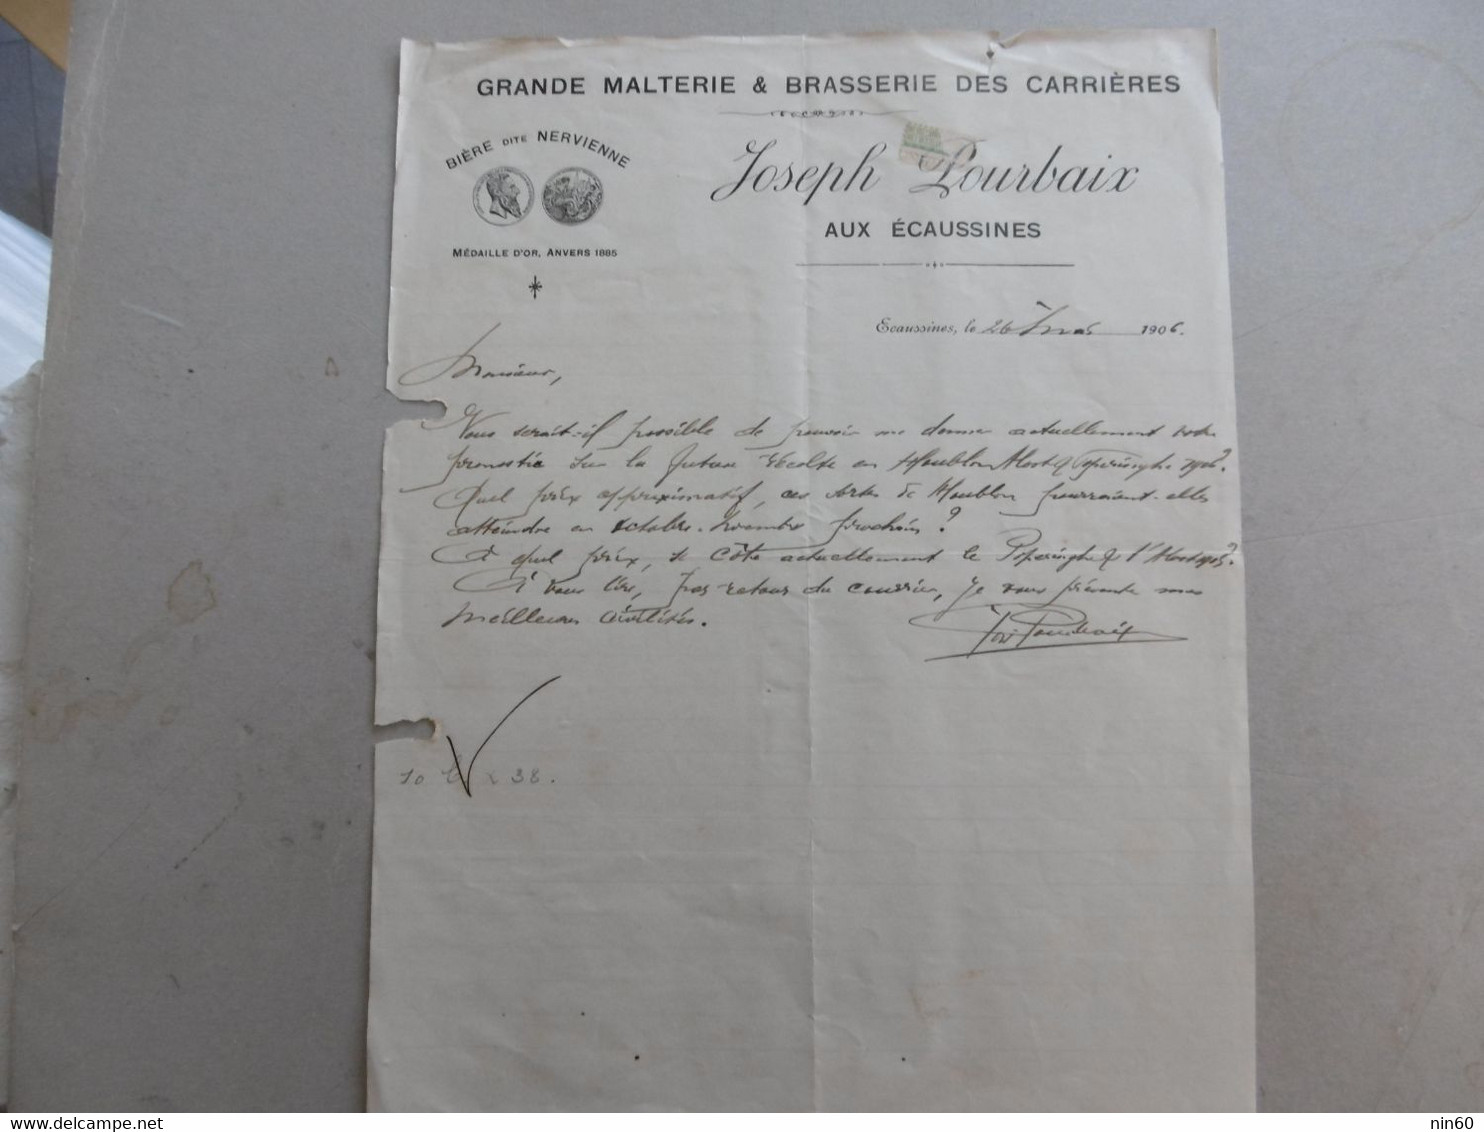 GRANDE MALTERIE & BRASSERIE DES CARRIÈRES
BIÈRE DITE NERVIENNE
MÉDAILLE D'OR, ANVERS 1885
Joseph Pourbaix
AUX ÉCAUSSINES
Ecaussines, le 26 Mai 1906.
Monsieur,
Vous serait-il possible de pouvoir me donner actuellement votre
pronostic sur la future récolte en Houblon Alost & Poperinghe 1906?
Quel prix approximatif, ces sortes de Houblon pourraient-elles
atteindre en octobre-novembre prochain?
A quel prix, se côte actuellement le Poperinghe & l'Alost 1905?
A vous lire, par retour du courrier, je vous présente mes
meilleures civilités.
Jos Pourbaix
10 38.
nin60